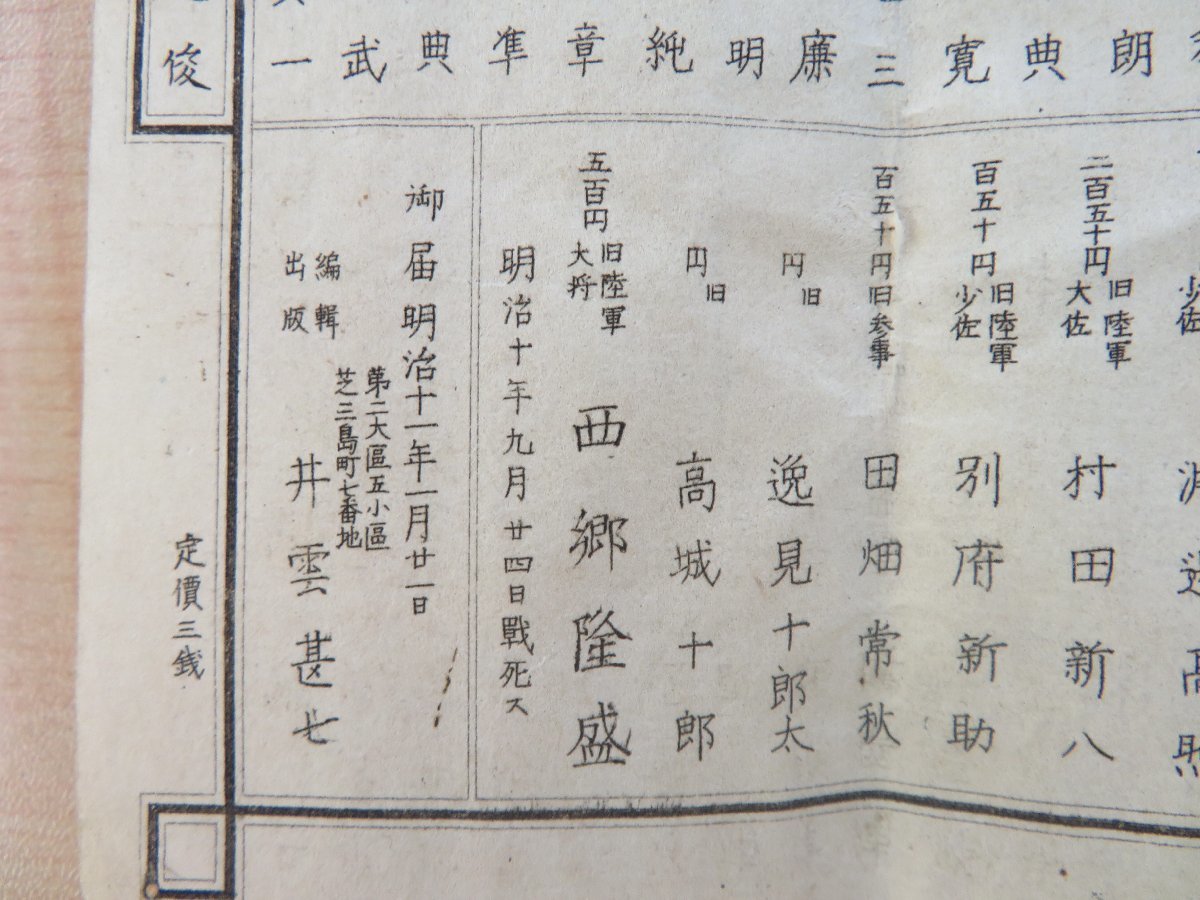 朗
典
寛
三
廉
明
純
章
準
典
武
一
俊
少佐
二百五十円 旧陸軍大佐 村田新八
百五十円 旧陸軍少佐 別府新助
百五十円 旧参事 田畑常秋
円 旧 逸見十郎太
円 旧 高城十郎
五百円 旧陸軍大将 西郷隆盛
明治十年九月廿四日戰死ス
御届明治十一年一月廿一日
第二大區五小區
芝三島町七番地
編輯
出版
井雲甚七
定價三銭